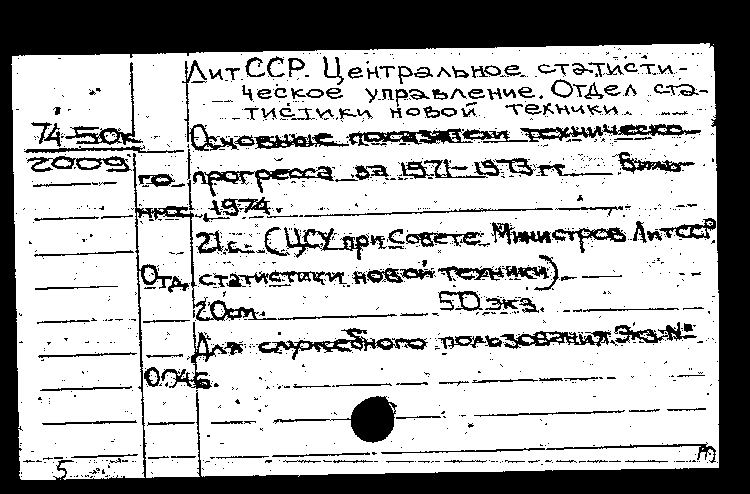 ЛитССР. Центральное статисти-
ческое управление. Отдел ста-
тистики новой техники.
74-50к
2009
Основные показатели техническо-
го прогресса за 1971-1973 гг. Виль-
нюс, 1974.
21 с. (ЦСУ при Совете Министров ЛитССР.
Отд. статистики новой техники).
20см. 50 экз.
Для служебного пользования. Экз. №
0046.
5